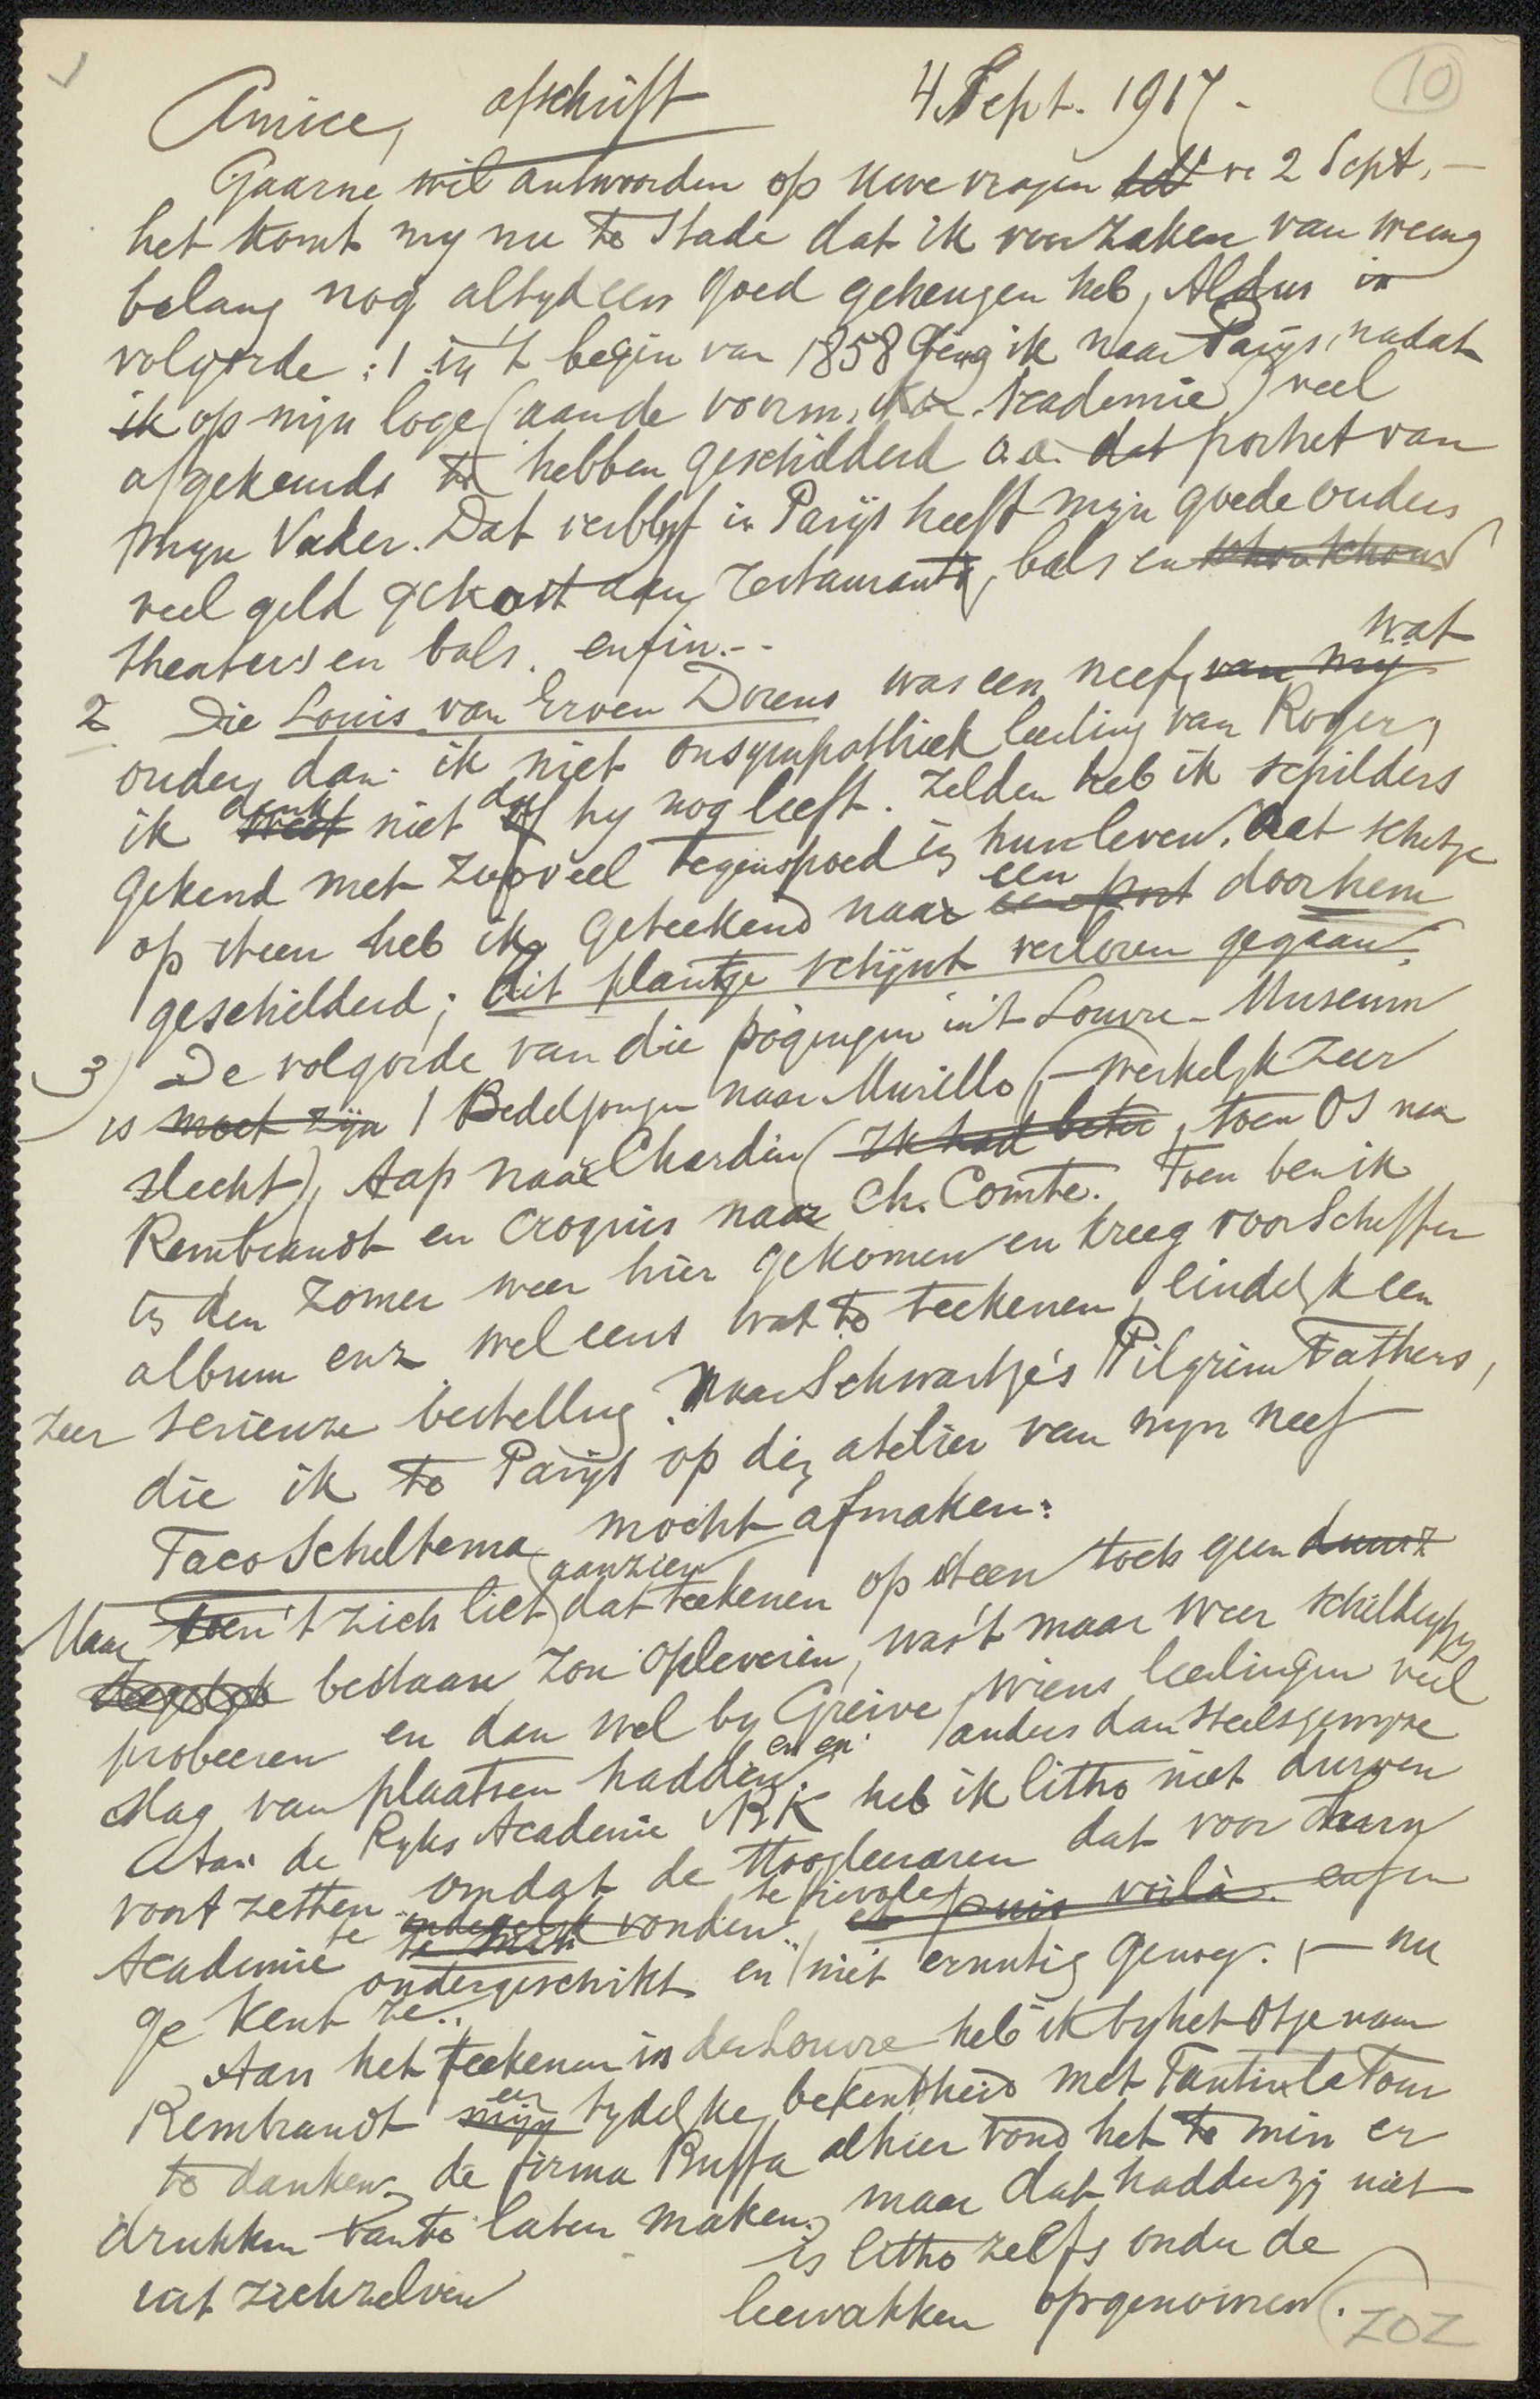 10
Amice, afschrift 4 Sept. 1917.
Gaarne wil antwoorden op uwe vragen dd° ve 2 Sept. —
het komt my nu te stade dat ik voor zaken van weinig
belang nog altyd een goed geheugen heb, Aldus in
volgorde : 1 in 't begin van 1858 Ging ik naar Parijs, nadat
ik op mijn loge (aan de voorm. Kon. Academie) veel
afgekeurds te hebben geschilderd o.a. dat portret van
myn Vader. Dat verblyf in Parijs heeft mijn goede ouders
veel geld gekost aan restaurants, bals en
theaters en bals. enfin...
2 Die Louis van Erven Dorens was een neef, van my wat
ouder dan ik niet onsympathiek leerling van Roger,
ik weet denk niet of dat hy nog leeft. Zelden heb ik schilders
gekend met zooveel tegenspoed in hun leven. Dat schetsje
op steen heb ik geteekend naar een port een door hem
geschilderd; dit plaatje schijnt verloren gegaan.
3) De volgorde van die pogingen in 't Louvre-Museum
is moet zijn 1 Bedeljongen naar Murillo (— werkelyk zeer
slecht), Aap naar Chardin (Ik had beter, toen Os naar
Rembrandt en croquis naar Ch. Comte. Toen ben ik
in den Zomer weer hier gekomen en kreeg voor Scheffer
album enz wel eens wat te teekenen, eindelyk een
zeer serieuze bestelling. naar Schwartze's Pilgrim Fathers,
die ik te Parijs op die atelier van myn neef
Taco Scheltema mocht afmaken.
Maar toen 't zich liet aanzien dat teekenen op steen toch geen
bestaan zou opleveren, was 't maar weer schildertjes
probeeren en dan wel by Greive, wiens leerlingen veel
slag van plaatsen hadden. en en anders dan steelsgewyze
Aan de Ryks Academie RK heb ik litho niet durven
voortzetten omdat de Hoogleeraren dat voor deurn
Academie te min vonden te frivole, en puis voilà. enfin
te ondergeschikt en niet ernstig genoeg. — nu
ge kent ze..
Aan het teekenen in den Louvre heb ik by het Osje van
Rembrandt mijn een tydelyke bekendheid met Fantin la Tour
te danken, de firma Buffa alhier vond het te min er
drukken van te laten maken, maar dat hadden zij niet
uit zichzelven is litho zelfs onder de
leervakken opgenomen.
ZOZ